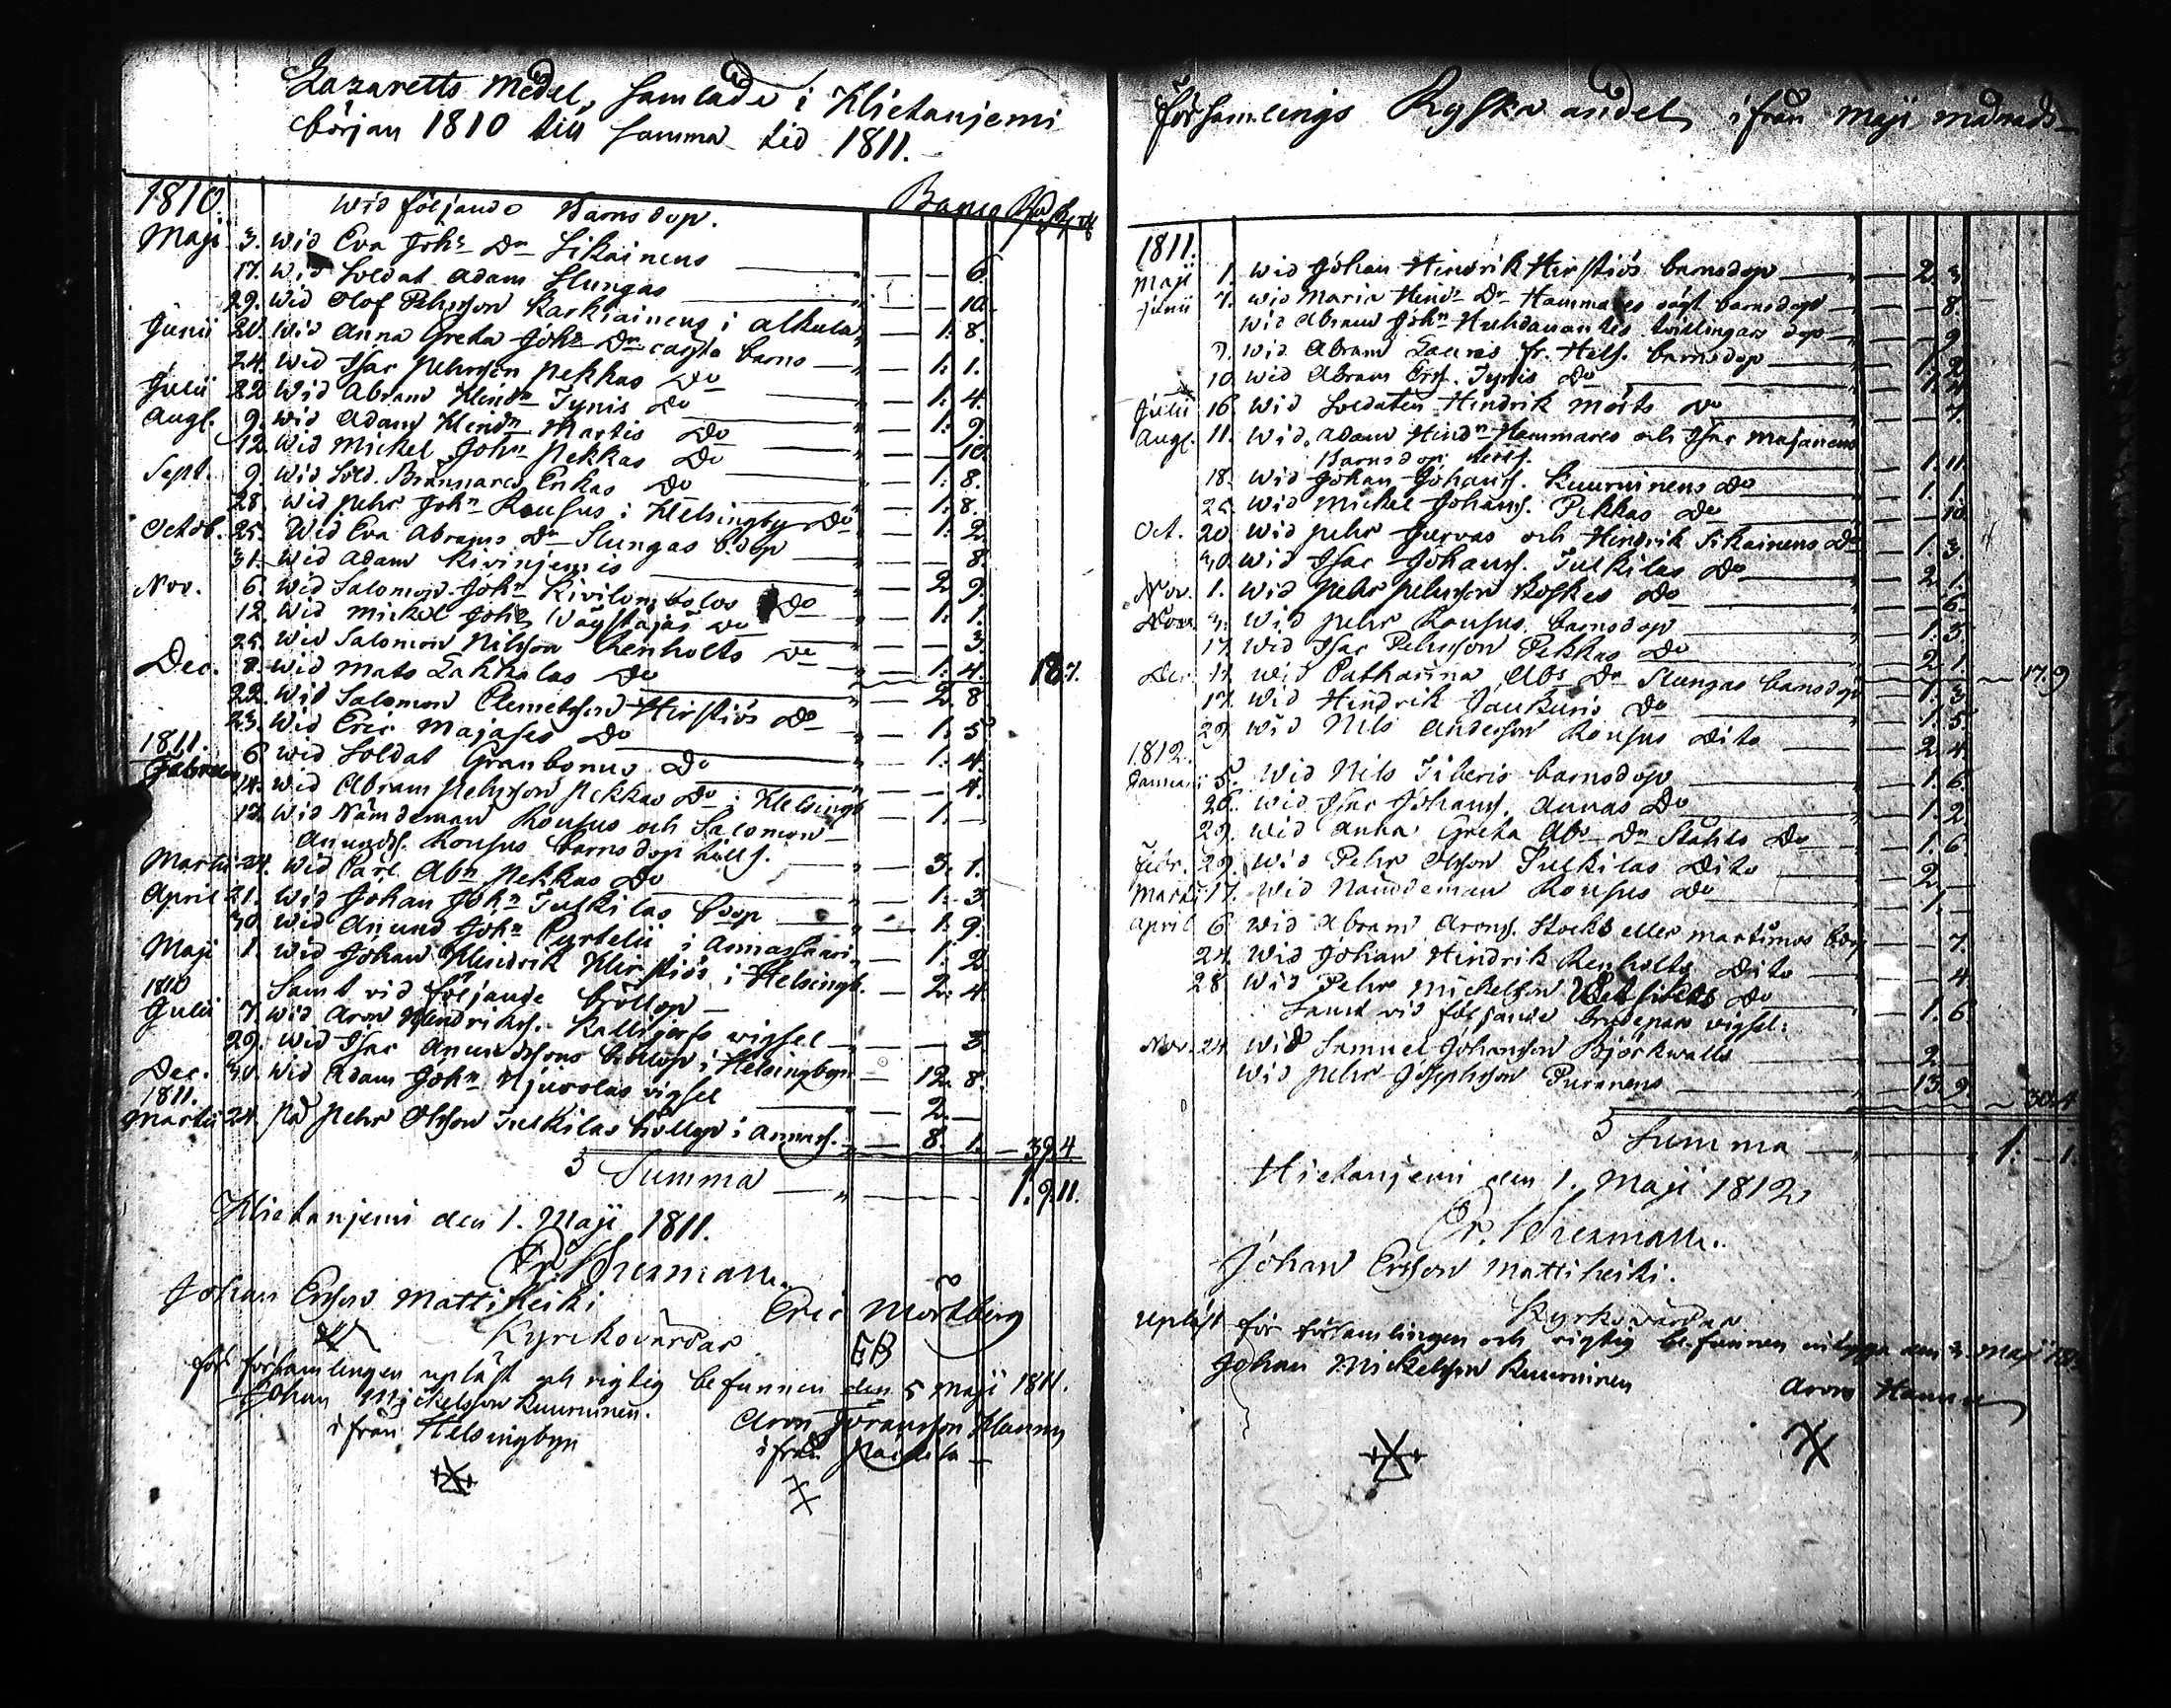 Lazaretts Medel, samlade i Hietaniemi
början 1810 till samma tid 1811.
1810. Wid följande Barnsdop. Banco Rd
Maji 3. Wid Eva Johs Dr Sikainens — 6.
17. Wid Soldat Adam Slungas — 10.
29. Wid Olof Pehrsson Karkiainens i Alkula — 1. 8.
Junii 20. Wid Anna Greta Johs Dr barns — 1. 1.
24. Wid Isac Pehrsson Pekkas Do — 1. 4.
Julii 22 Wid Abram Hindn Tynis Do — 1. 9.
Augl. 9. Wid Adam Hindn Martis Do — 10.
12. Wid Mickel John Pekkas Do — 1. 8.
Sept. 9. Wid Sold. Brännares Enkas Do — 1. 8.
28. Wid Pehr John Rousus i Helsingby Do — 1. 2.
Octob. 25. Wid Eva Abrams Dr Slungas b.dop — 8.
31. Wid Adam Kiviniemis — 2 9.
Nov. 6. Wid Salomon John Kivilombolos Do — 1. 1.
12. Wid Mickel Johs Do — 3.
25. Wid Salomon Nilsson Renholts Do — 1. 4. 18.7.
Dec. 8. Wid Mats Lakkalas Do — 2. 8
22. Wid Salomon Clemetsson Hirstiös Do — 1. 5
23. Wid Eric Majases Do — 1. 4.
1811. 6 Wid Soldat Granboms Do — 4.
14. Wid Abram Pehrsson Pekkas Do i Helsingb — 1. —
17. Wid Nämdeman Rousus och Salomon
Anundss. Rousus barnsdop tills. — 3. 1.
Martii 24. Wid Carl Abn Pekkas Do — 1. 3.
April 21. Wid Johan John Tulkilas b.dop — 1. 9.
30. Wid Anund John Pyrteliï i — 1. 2
Maji 1. Wid Johan Hindrik Hirstiös i Helsingb. — 2. 4.
1810 Samt vid följande bröllop
Julii 7. Wid Aron Hindrikss. Kallijerfs vigsel — 3.
29. Wid Isac Anundssons brölop i Helsingbyn — 12. 8.
Dec. 30. Wid Adam John Njuvolas vigsel — 2. —
1811.
Martii 24. På Pehr Olsson Tulkilas bröllop i — 8. 1. — 39.4
Summa — 1. 9. 11.
Hietaniemi den 1. Maji 1811.
Johan Ersson Mattiheiki Eric Mörtberg
Kyrckovärdar. EB
för församlingen upläst och rigtig befunnen den 5 Maji 1811.
Johan Mickelsson Kuurninen. Aron Joransson Hannu
ifrån Helsingbyn ifrån Paikila
församlings Ryska andel, ifrån Maji månads-
1811.
Maji 1. Wid Johan Hindrik Hirstiös barnsdop — 2. 3.
Junii 7. Wid Maria Hinds Dr Hammares barnsdop — 8.
Wid Abram John twillingars dop — 9
9. Wid Abram Lauris fr. Hels. barnsdop — 1. 2
10. Wid Abram Ers. Tynis Do — 1. 2
Julii 16. Wid Soldaten Hindrik Mörts Do — 7.
Augl. 11. Wid Adam Hindn Hammares och Isac Majanens
Barnsdop — 1. 11.
18. Wid Johan Johanss. Kuurninens Do — 1. 1.
25. Wid Mickel Johanss. Pekkas Do — 10.
Oct. 20. Wid Pehr Jervas och Hindrik Sikainens Do — 1. 3.
30. Wid Isac Johanss. Tulkilas Do — 2. 1.
Nov. 1. Wid Pehr Pehrsson Do — 6.
3. Wid Pehr Rousus barnsdop — 1. 3.
17. Wid Isac Pehrsson Pekkas Do — 2. 1.
Dec. 11. Wid Catharina Abs Dr Slungas barnsdop — 1. 3 — 17.9
17. Wid Hindrik Do — 1. 5.
29. Wid Nils Andersson Rousus Dito — 2. 4.
1812.
5. Wid Nils barnsdop — 1. 6.
26. Wid Isac Johanss. Annas Do — 1. 2.
29. Wid Anna Greta Abs Dr Ståhls Do — 1. 6.
Febr. 29. Wid Pehr Olsson Tulkilas Dito — 2. —
Martii 17. Wid Nämdeman Rousus Do — 1. —
April 6. Wid Abram Arons. Stocks eller Martimos bdop — 7.
24. Wid Johan Hindrik Renholts Dito — 4
28. Wid Pehr Mickelsson Do — 1. 6.
Samt vid följande brudepars vigsel:
Nov. 24. Wid Samuel Johansson Björkwalls — 2. —
Wid Pehr Josephsson Puranens — 13. 9. — 30.4
Summa — 1. — 1.
Hietaniemi den 1. Maji 1812.
Johan Ersson Mattiheiki.
Kyrkovärdar
Upläst för församlingen och rigtig befunnen den 3. Maji
Johan Mickelsson Kuurninen Aron Hannu